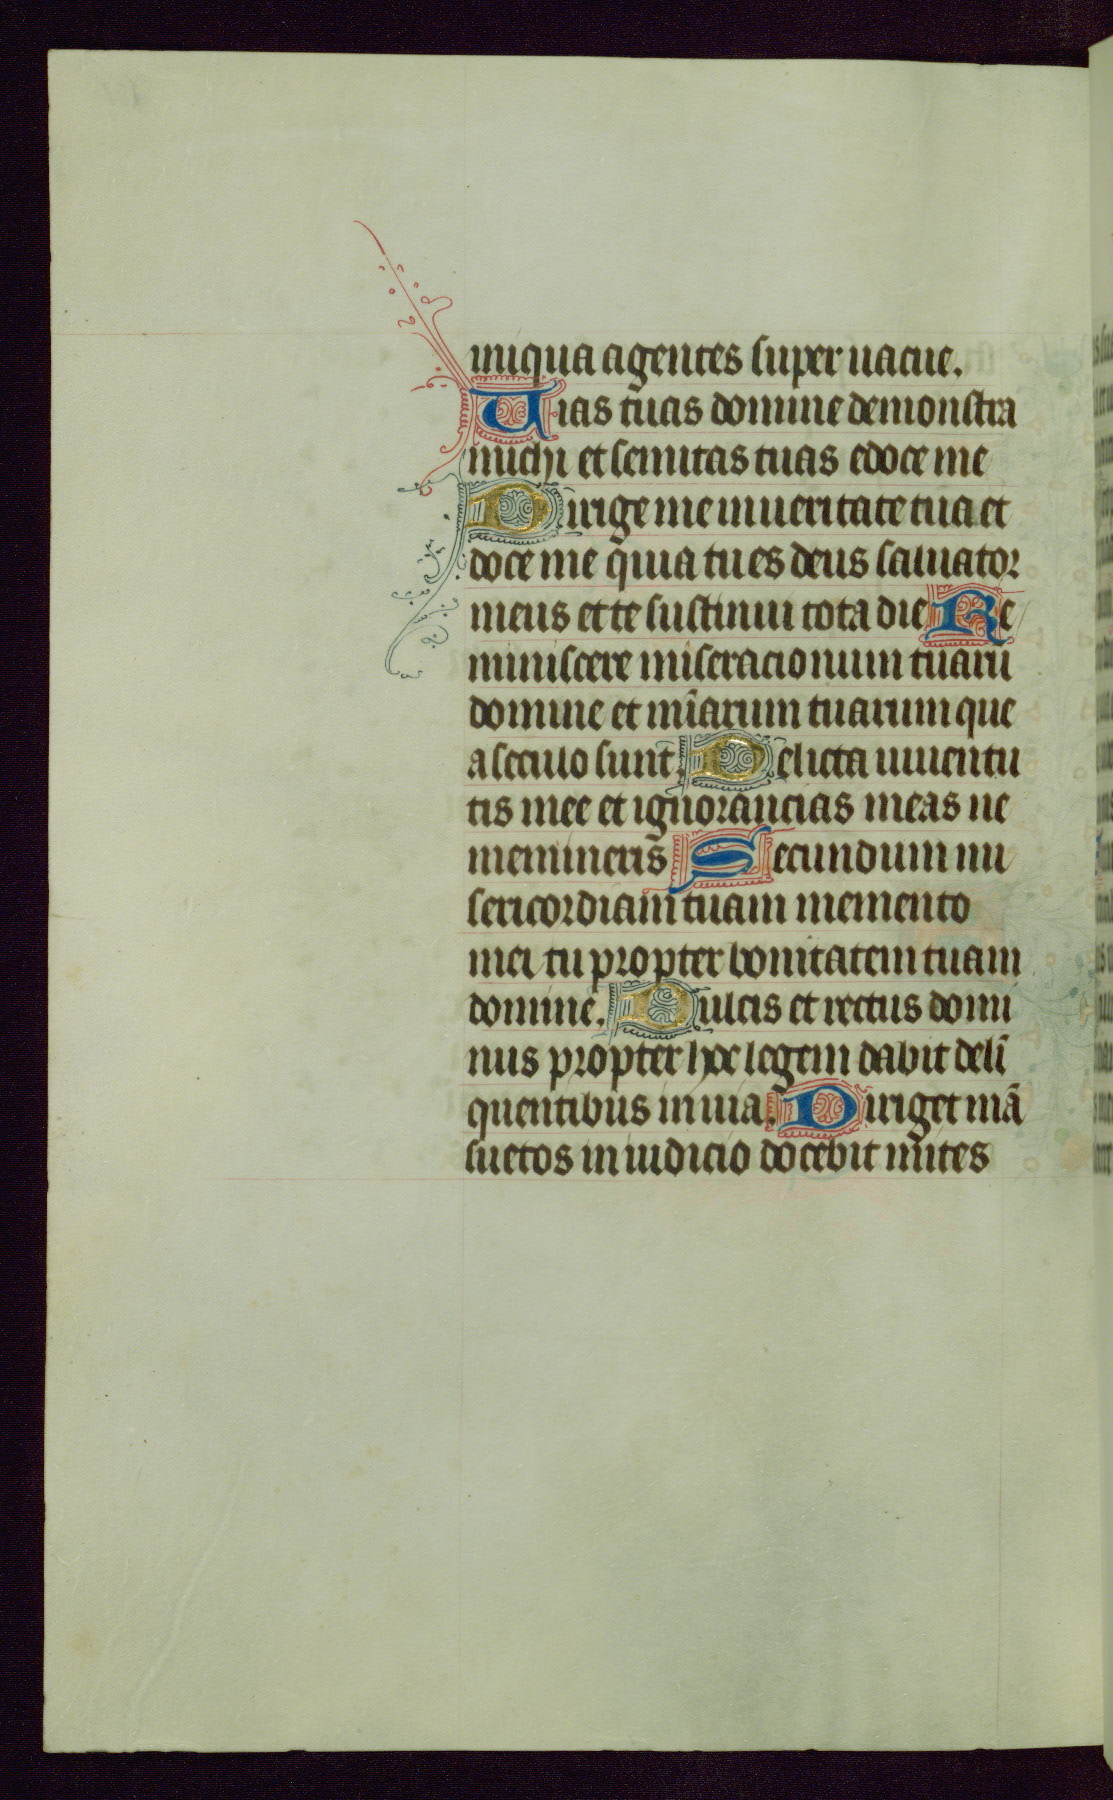 iniqua agentes super uacue.
Uias tuas domine demonstra
michi et semitas tuas edoce me
Dirige me in ueritate tua et
doce me quia tu es deus saluator
meus et te sustinui tota die Re
miniscere miseracionum tuarū
domine et mīarum tuarum que
a seculo sunt. Delicta iuuentu
tis mee et ignorancias meas ne
memineris Secundum mi
sericordiam tuam memento
mei tu propter bonitatem tuam
domine. Dulcis et rectus domi
nus propter hoc legem dabit deli̅
quentibus in uia. Diriget mā
suetos in iudicio docebit mites